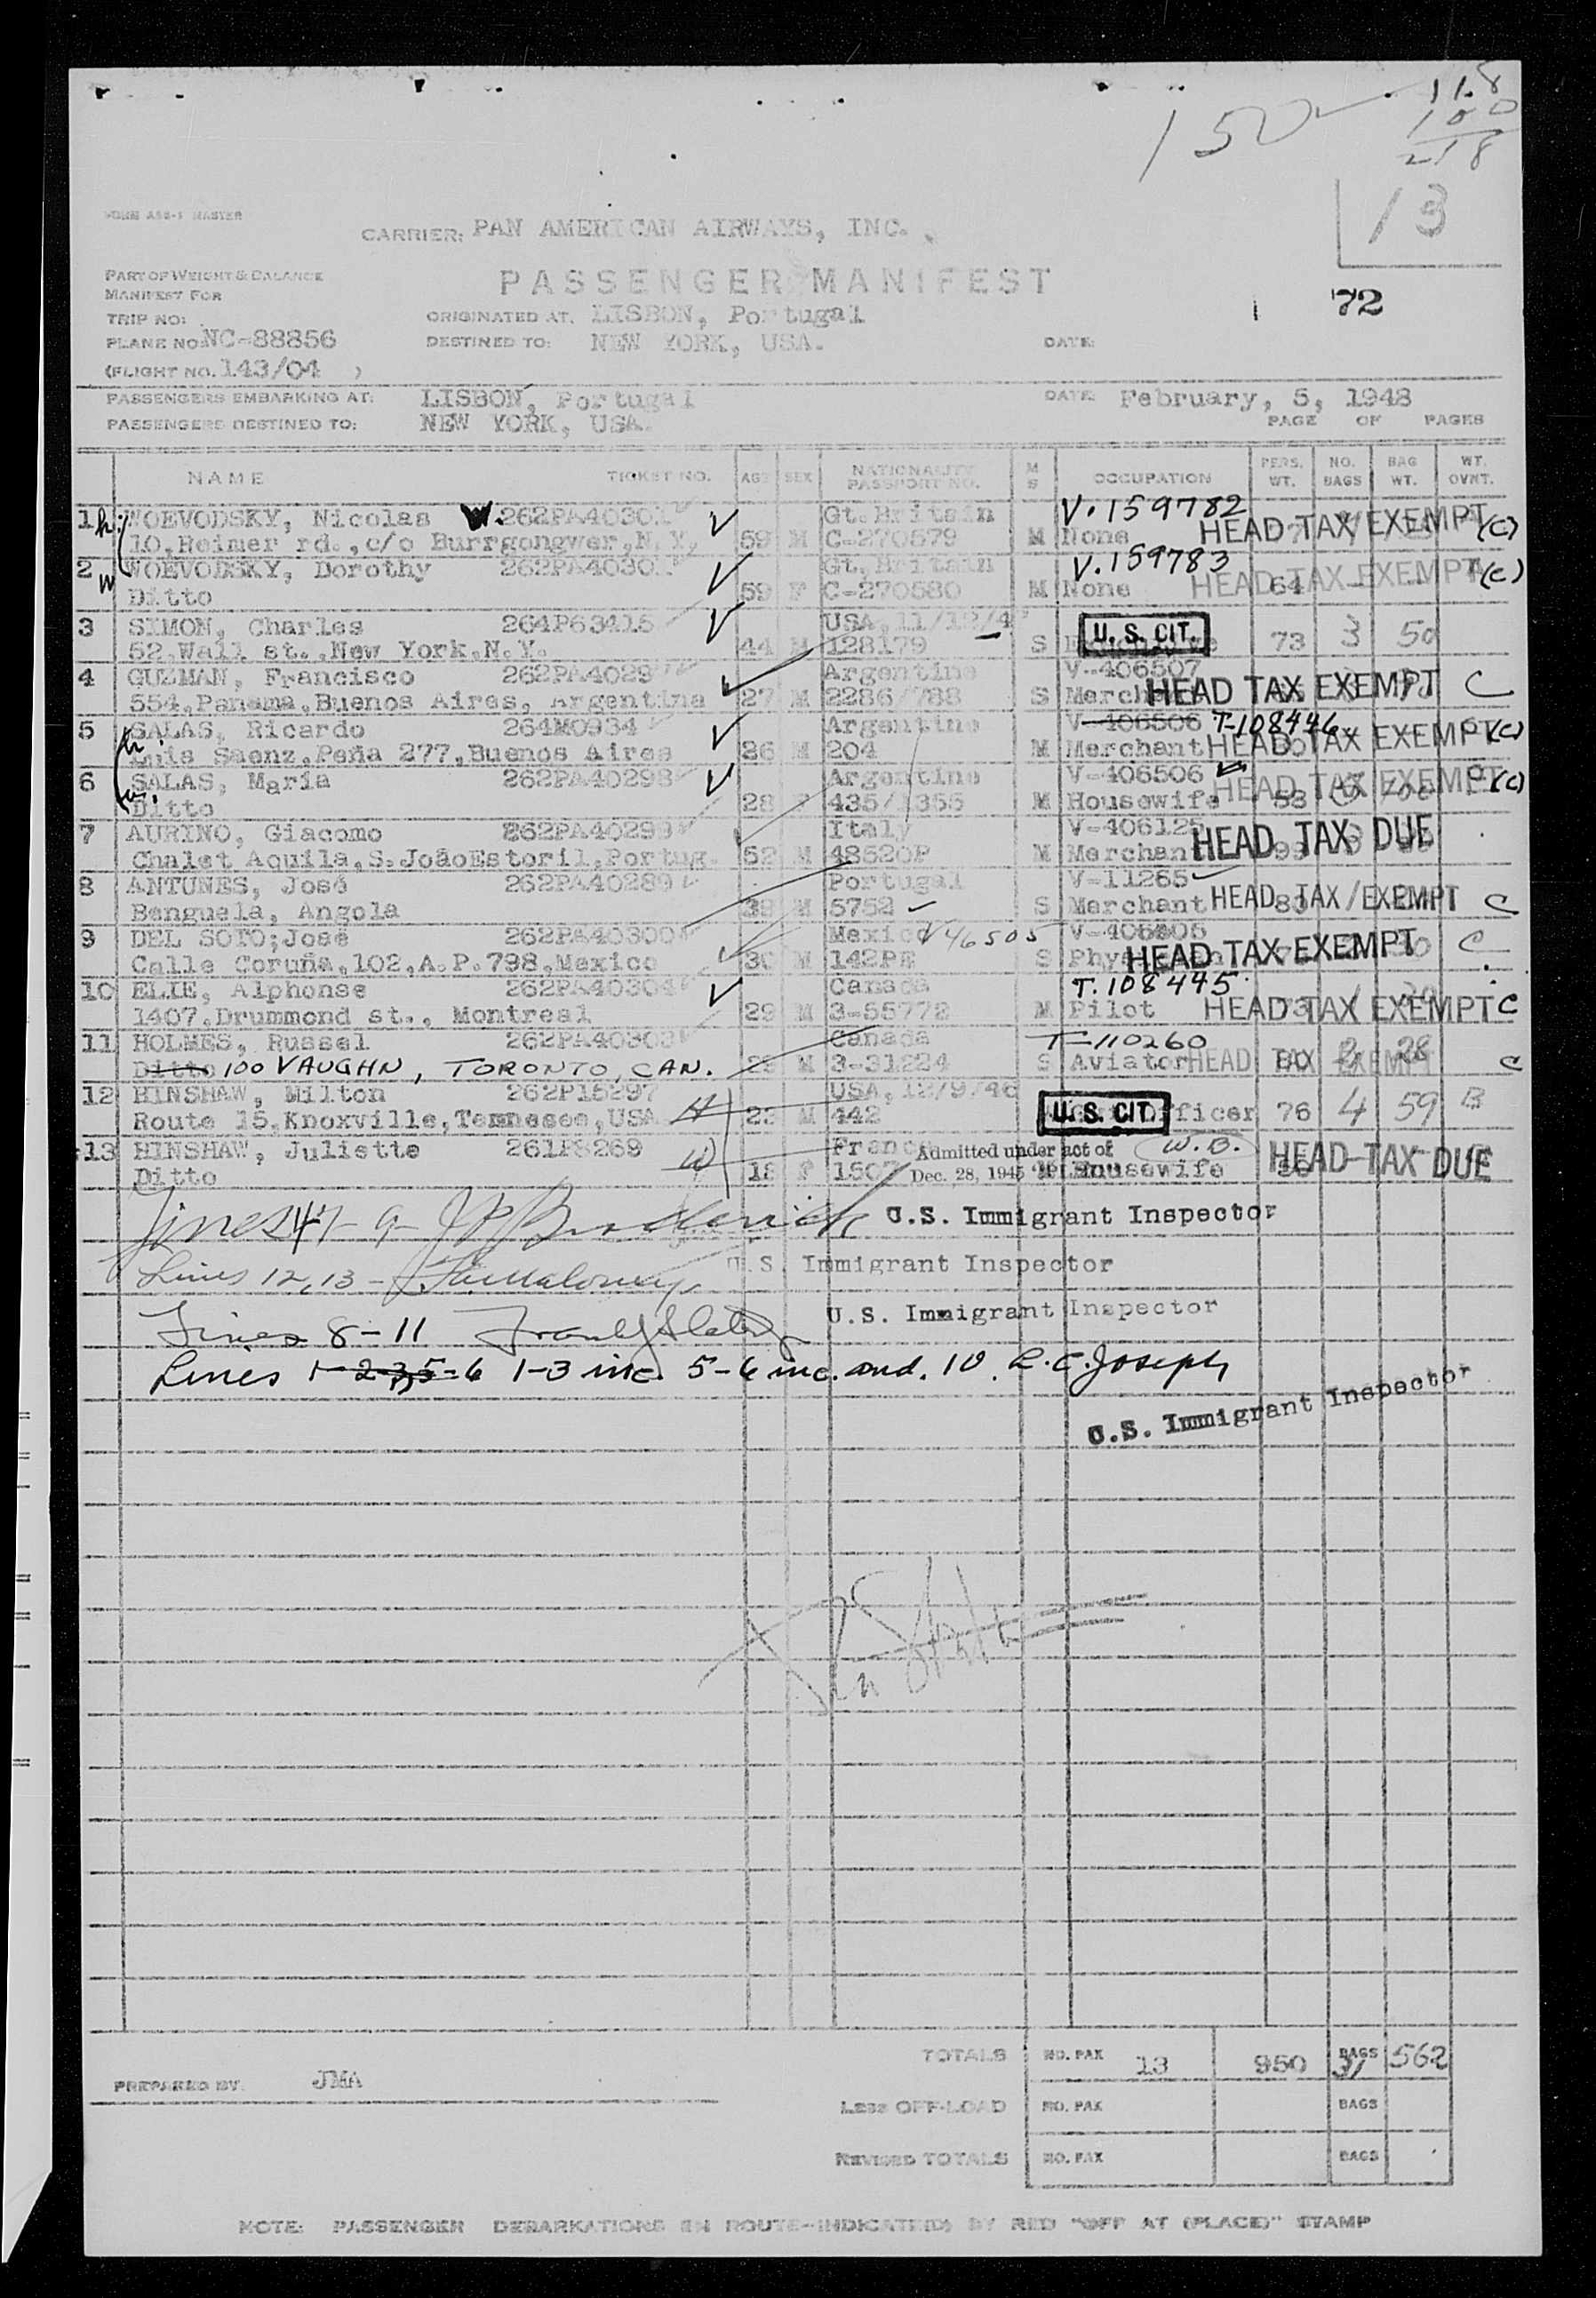 11.8
150
100
218
13
FORM ASS-1 MASTER
CARRIER: PAN AMERICAN AIRWAYS, INC.
PART OF WEIGHT & BALANCE
MANIFEST FOR
PASSENGER MANIFEST
72
TRIP NO:
ORIGINATED AT. LISBON, Portugal
PLANE NO: NC-88856
DESTINED TO: NEW YORK, USA.
DATE:
(FLIGHT NO. 143/04 )
PASSENGERS EMBARKING AT: LISBON, Portugal DATE: February, 5, 1948
PASSENGERS DESTINED TO: NEW YORK, USA. PAGE OF PAGES
NAME TICKET NO. AGE SEX NATIONALITY PASSPORT NO. M S OCCUPATION PERS. WT. NO. BAGS BAG WT. WT. OVNT.
1 h WOEVODSKY, Nicolas W. 262PA40301 Gt. Britain V.159782
10,Reimer rd.,c/o Burrgongwer,N.Y, 59 M C-270579 M None HEAD TAX EXEMPT (C)
2 W WOEVODSKY, Dorothy 262PA40301 Gt. Britain V.159783
Ditto 59 F C-270580 M None 64 HEAD TAX EXEMPT (C)
3 SIMON, Charles 264P63415 USA, 11/12/4 U. S. CIT.
52,Wall st.,New York,N.Y. 44 M 128179 S 73 3 50
4 GUZMAN, Francisco 262PA4029 Argentine V-406507
554,Panama,Buenos Aires, Argentina 27 M 2286/788 S Merch HEAD TAX EXEMPT C
5 SALAS, Ricardo 264M0934 Argentine V-406506 T-108446
Luis Saenz,Peña 277,Buenos Aires 26 M 204 M Merchant HEAD TAX EXEMPT (C)
6 SALAS, Maria 262PA40298 Argentine V-406506
Ditto 28 F 435/1355 M Housewife 53 HEAD TAX EXEMPT (C)
7 AURINO, Giacomo 262PA40299 Italy V-406125
Chalet Aquila,S.JoãoEstoril,Portug. 52 M 48520P M Merchan HEAD TAX DUE
8 ANTUNES, José 262PA40289 Portugal V-11265
Benguela, Angola 38 M 5752 S Merchant HEAD TAX EXEMPT C
9 DEL SOTO;José 262PA40300 Mexico V46505 V-406505
Calle Coruña,102,A.P.798,Mexico 30 M 142PE S Phy HEAD TAX EXEMPT C
10 ELIE, Alphonse 262PA40304 Canada T.108445
1407,Drummond st., Montreal 29 M 3-55772 M Pilot HEAD TAX EXEMPT C
11 HOLMES, Russel 262PA40303 Canada T-110260
Ditto 100 VAUGHN, TORONTO, CAN. M 3-31224 S Aviator HEAD TAX EXEMPT 80 2 28 C
12 HINSHAW, Milton 262P15297 USA, 12/9/46 U. S. CIT.
Route 15,Knoxville,Tennesee,USA 23 M 442 fficer 76 4 59 B
13 HINSHAW, Juliette 261P8269 Franc Admitted under act of W.B.
Ditto 18 F 1507 Dec. 28, 1945 M Housewife HEAD TAX DUE
Lines 4-7-9 U.S. Immigrant Inspector
Lines 12,13 - U.S. Immigrant Inspector
Lines 8-11 U.S. Immigrant Inspector
Lines 1-2-3-5-6 1-3 inc. 5-6 inc. and. 10. L.C. Joseph
U.S. Immigrant Inspector
TOTALS NO. PAX 13 950 BAGS 31 562
PREPARED BY: JMA
LESS OFF-LOAD NO. PAX BAGS
REVISED TOTALS NO. PAX BAGS
NOTE: PASSENGER DEBARKATIONS EN ROUTE-INDICATED BY RED "OFF AT (PLACE)" STAMP